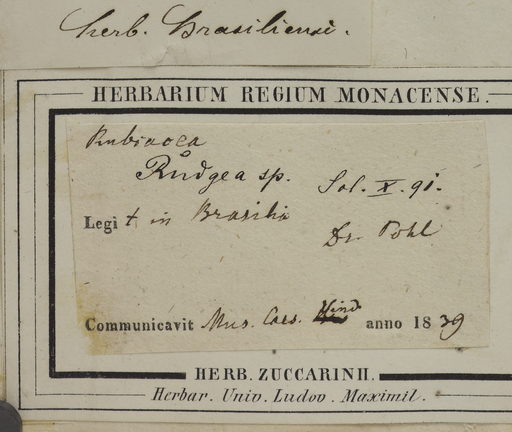 herb. Brasiliense.
HERBARIUM REGIUM MONACENSE.
Rubiacea
Rudgea sp. Sol. X. 91.
Legit in Brasilia
Dr. Pohl
Communicavit Mus. Caes. Vind. anno 1839
HERB. ZUCCARINII.
Herbar. Univ. Ludov. Maximil.